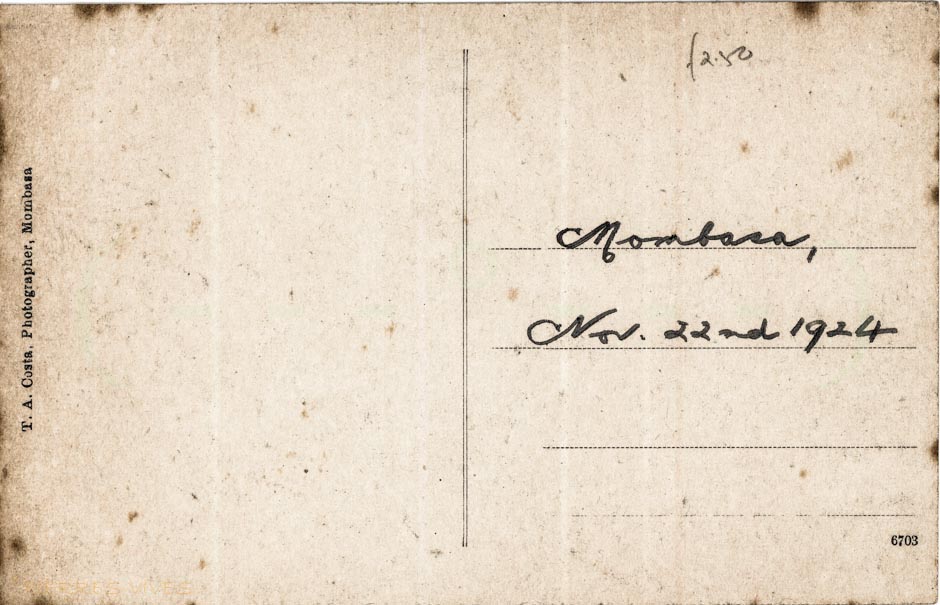 £2.50
Mombasa,
Nov. 22nd 1924
T. A. Costa, Photographer, Mombasa
6703